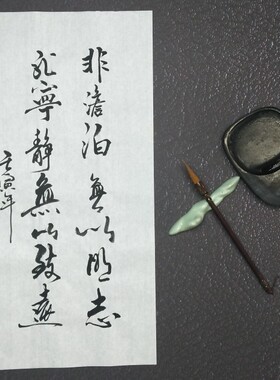 非澹泊無以明志
非寧靜無以致遠
壬寅年